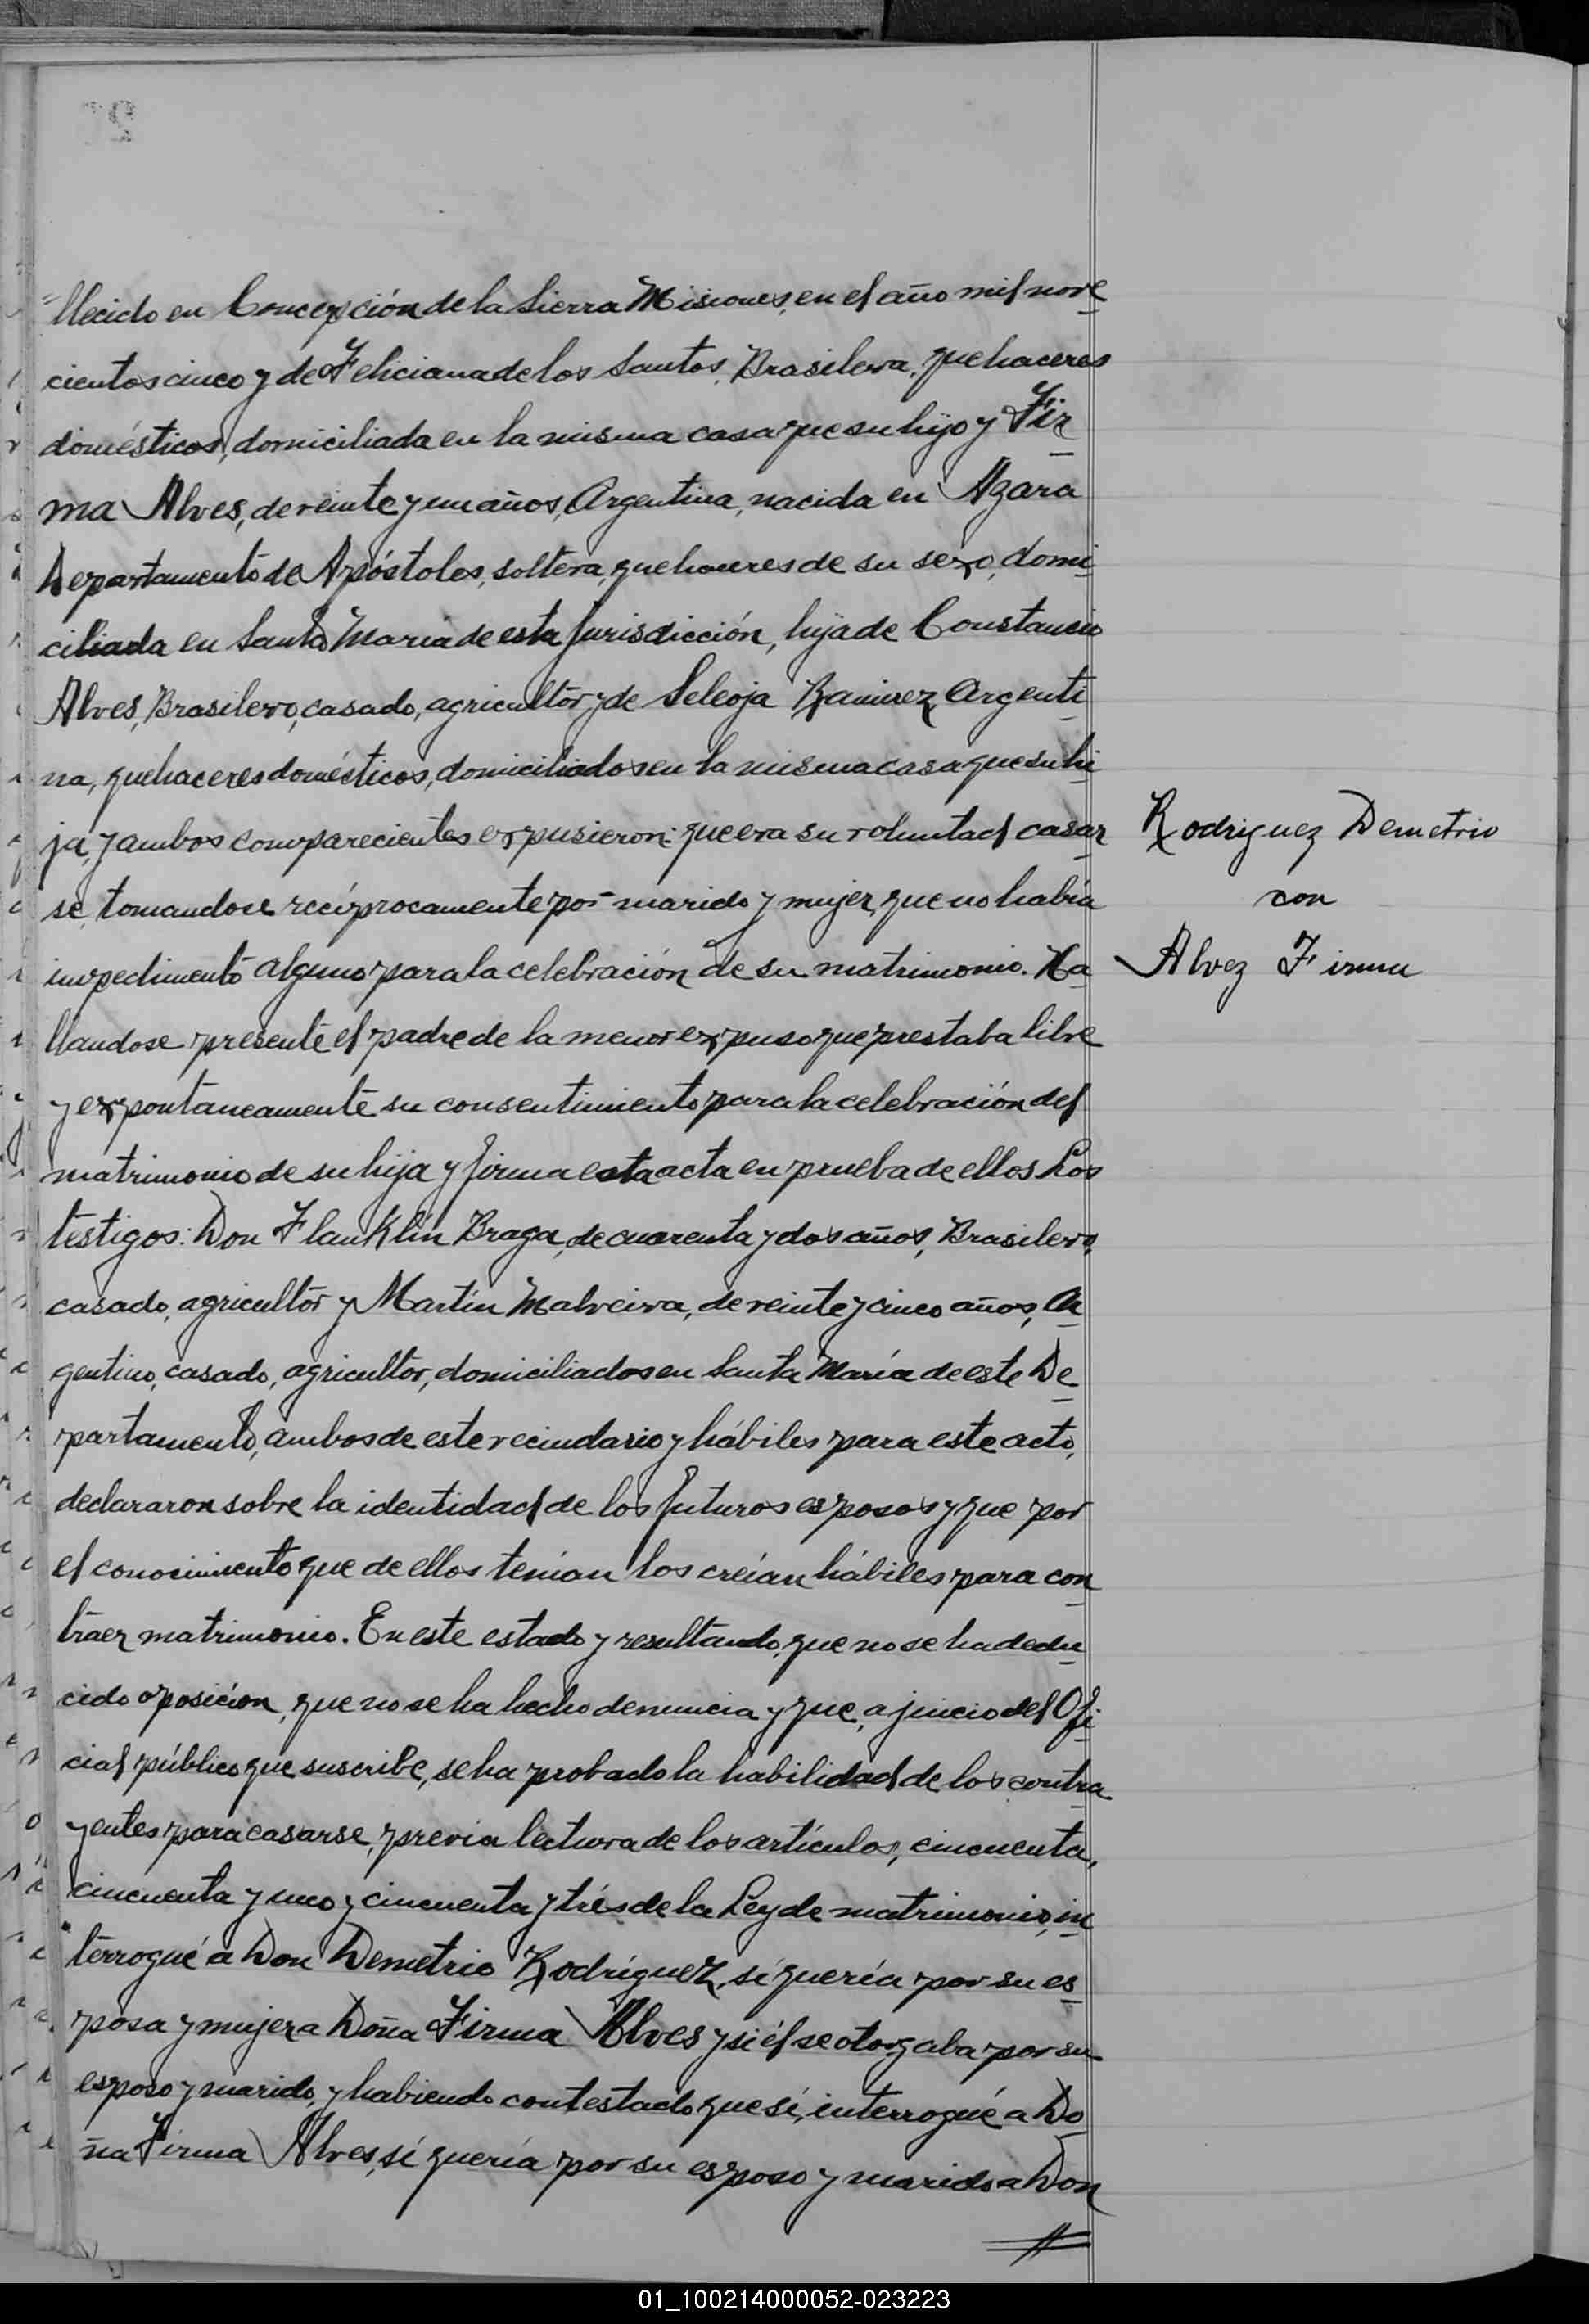 "llecido en Concepción de la Sierra Misiones, en el año mil nove
cientos cinco y de Feliciana de los Santos, Brasilera, quehaceres
domésticos, domiciliada en la misma casa que su hijo y Fir
ma Alves, de veinte y un años, Argentina, nacida en Azara
Departamento de Apóstoles, soltera, quehaceres de su sexo, domi
ciliada en Santa María de esta Jurisdicción, hija de Constancio
Alves, Brasilero, casado, agricultor, y de Seleoja Ramirez, Argenti
na, quehaceres domésticos, domiciliados en la misma casa que su hi
ja, y ambos comparecientes expusieron: que era su voluntad casar
se, tomandose recíprocamente por marido y mujer, que no había
impedimento alguno para la celebración de su matrimonio. Ha
llandose presente el padre de la menor expuso que prestaba libre
y expontaneamente su consentimiento para la celebración del
matrimonio de su hija y firma esta acta en prueba de ellos Los
testigos: Don Flanklín Braga, de cuarenta y dos años, Brasilero,
casado, agricultor y Martín Malveira, de veinte y cinco años, Ar
gentino, casado, agricultor, domiciliados en Santa María de este De
partamento, ambos de este vecindario y hábiles para este acto,
declararon sobre la identidad de los futuros esposos y que por
el conocimiento que de ellos tenían los creían hábiles para con
traer matrimonio. En este estado y resultando, que no se ha dedu
cido oposición, que no se ha hecho denuncia y que, a juicio del Ofi
cial público que suscribe, se ha probado la habilidad de los contra
yentes para casarse, previa lectura de los artículos, cincuenta,
cincuenta y uno y cincuenta y trés de la Ley de matrimonio, in
terrogué a Don Demetrio Rodríguez, sí quería por su es
posa y mujer a Doña Firma Alves y si él se otorgaba por su
esposo y marido, y habiendo contestado que sí, interrogué a Do
ña Firma Alves, sí quería por su esposo y marido a Don
Rodriguez Demetrio
con
Alvez Firma
01_100214000052-023223